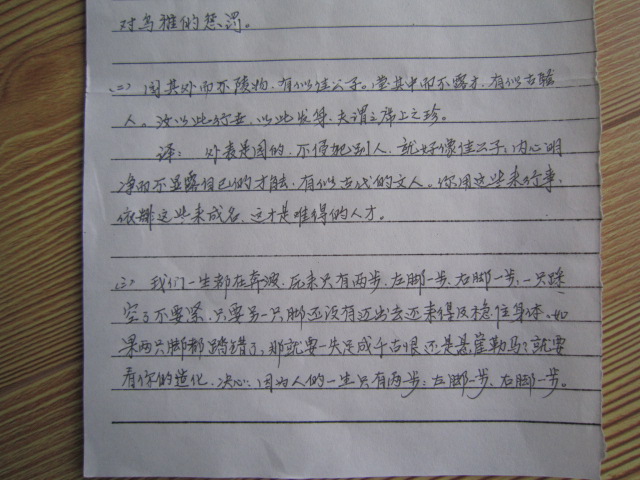 对乌鸦的惩罚。
(二) 圆其外而不陵物,有似佳公子。莹其中而不露才,有似古骚
人。汝以此行幸,以此发身,夫谓之席上之珍。
译:外表是圆的,不侵犯别人,就好像佳公子;内心明
净而不显露自己的才能,有似古代的文人。你用这些来行事,
依靠这些来成名,这才是难得的人才。
(三) 我们一生都在奔波,厎来只有两步,左脚一步,右脚一步,一只踩
空了不要紧,只要另一只脚还没有迈出去还来得及稳住身体。如
果两只脚都踏错了,那就要一失足成千古恨还是悬崖勒马?就要
看你的造化、决心;因为人的一生只有两步:左脚一步,右脚一步。